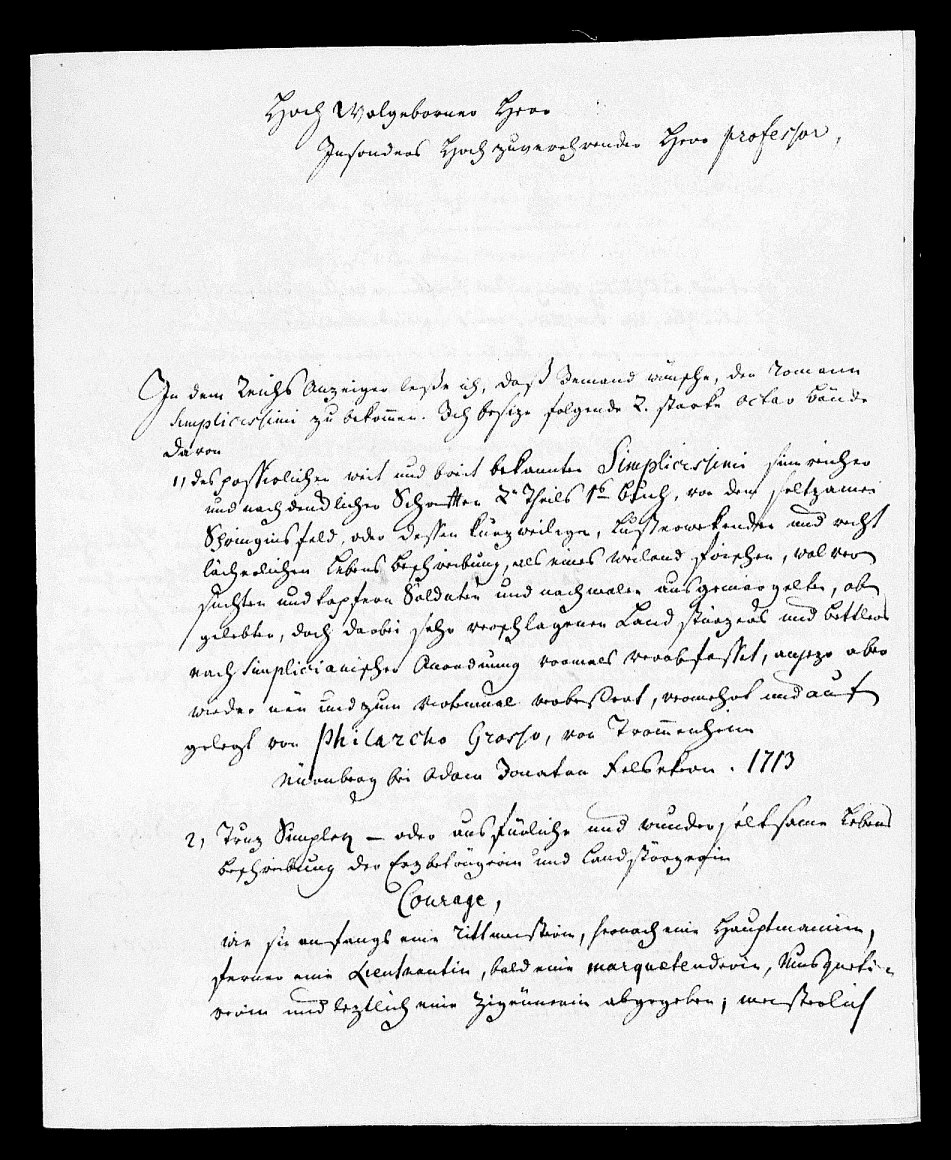 Hoch Wolgeborner Herr
Insonders Hoch zuverehrender Herr professor,
In dem Reichs Anzeiger lese ich, daß Jemand wünsche, den Romann
Simplicissimi zu bekom̄en. Ich besize folgende 2. starke octav Bände
davon
1, des possirlichen weit und breit bekannten Simplicissimi sinnreicher
und nachdencklicher Schrifften 2n Theils 1s Buch, von dem seltzamen
Springinsfeld, oder dessen kurzweilege, Lusterwekende und recht
lächerlichen Lebens Beschreibung, als eines weiland frischen, wol ver
suchten und tapfern Soldaten und nachmalen ausgemergelten, ab
gelebten, doch darbei sehr verschlagenen Land störzers und Bettlers
nach Simplicianischer Anordnung vormals verabfasset, anjezo aber
wieder neu und zum viertenmal verbessert, vermehrt und auf
gelegt von Philarcho Grosso, von Trom̄enheim
Nürnberg bei Adam Jonatan Felsekern. 1713
2, Truz Simplex – oder ausfürliche und wunder seltsame Lebens
Beschreibung der Erzbetrügerin und Landstörzerin
Courage,
wie sie anfangs eine Rittmeisterin, hernach eine Hauptmännin,
ferner eine Lieutnantin, bald eine marquetenderin, Musqueti-
rerin und leztlich eine Zigeunerin abgegeben, meisterlich